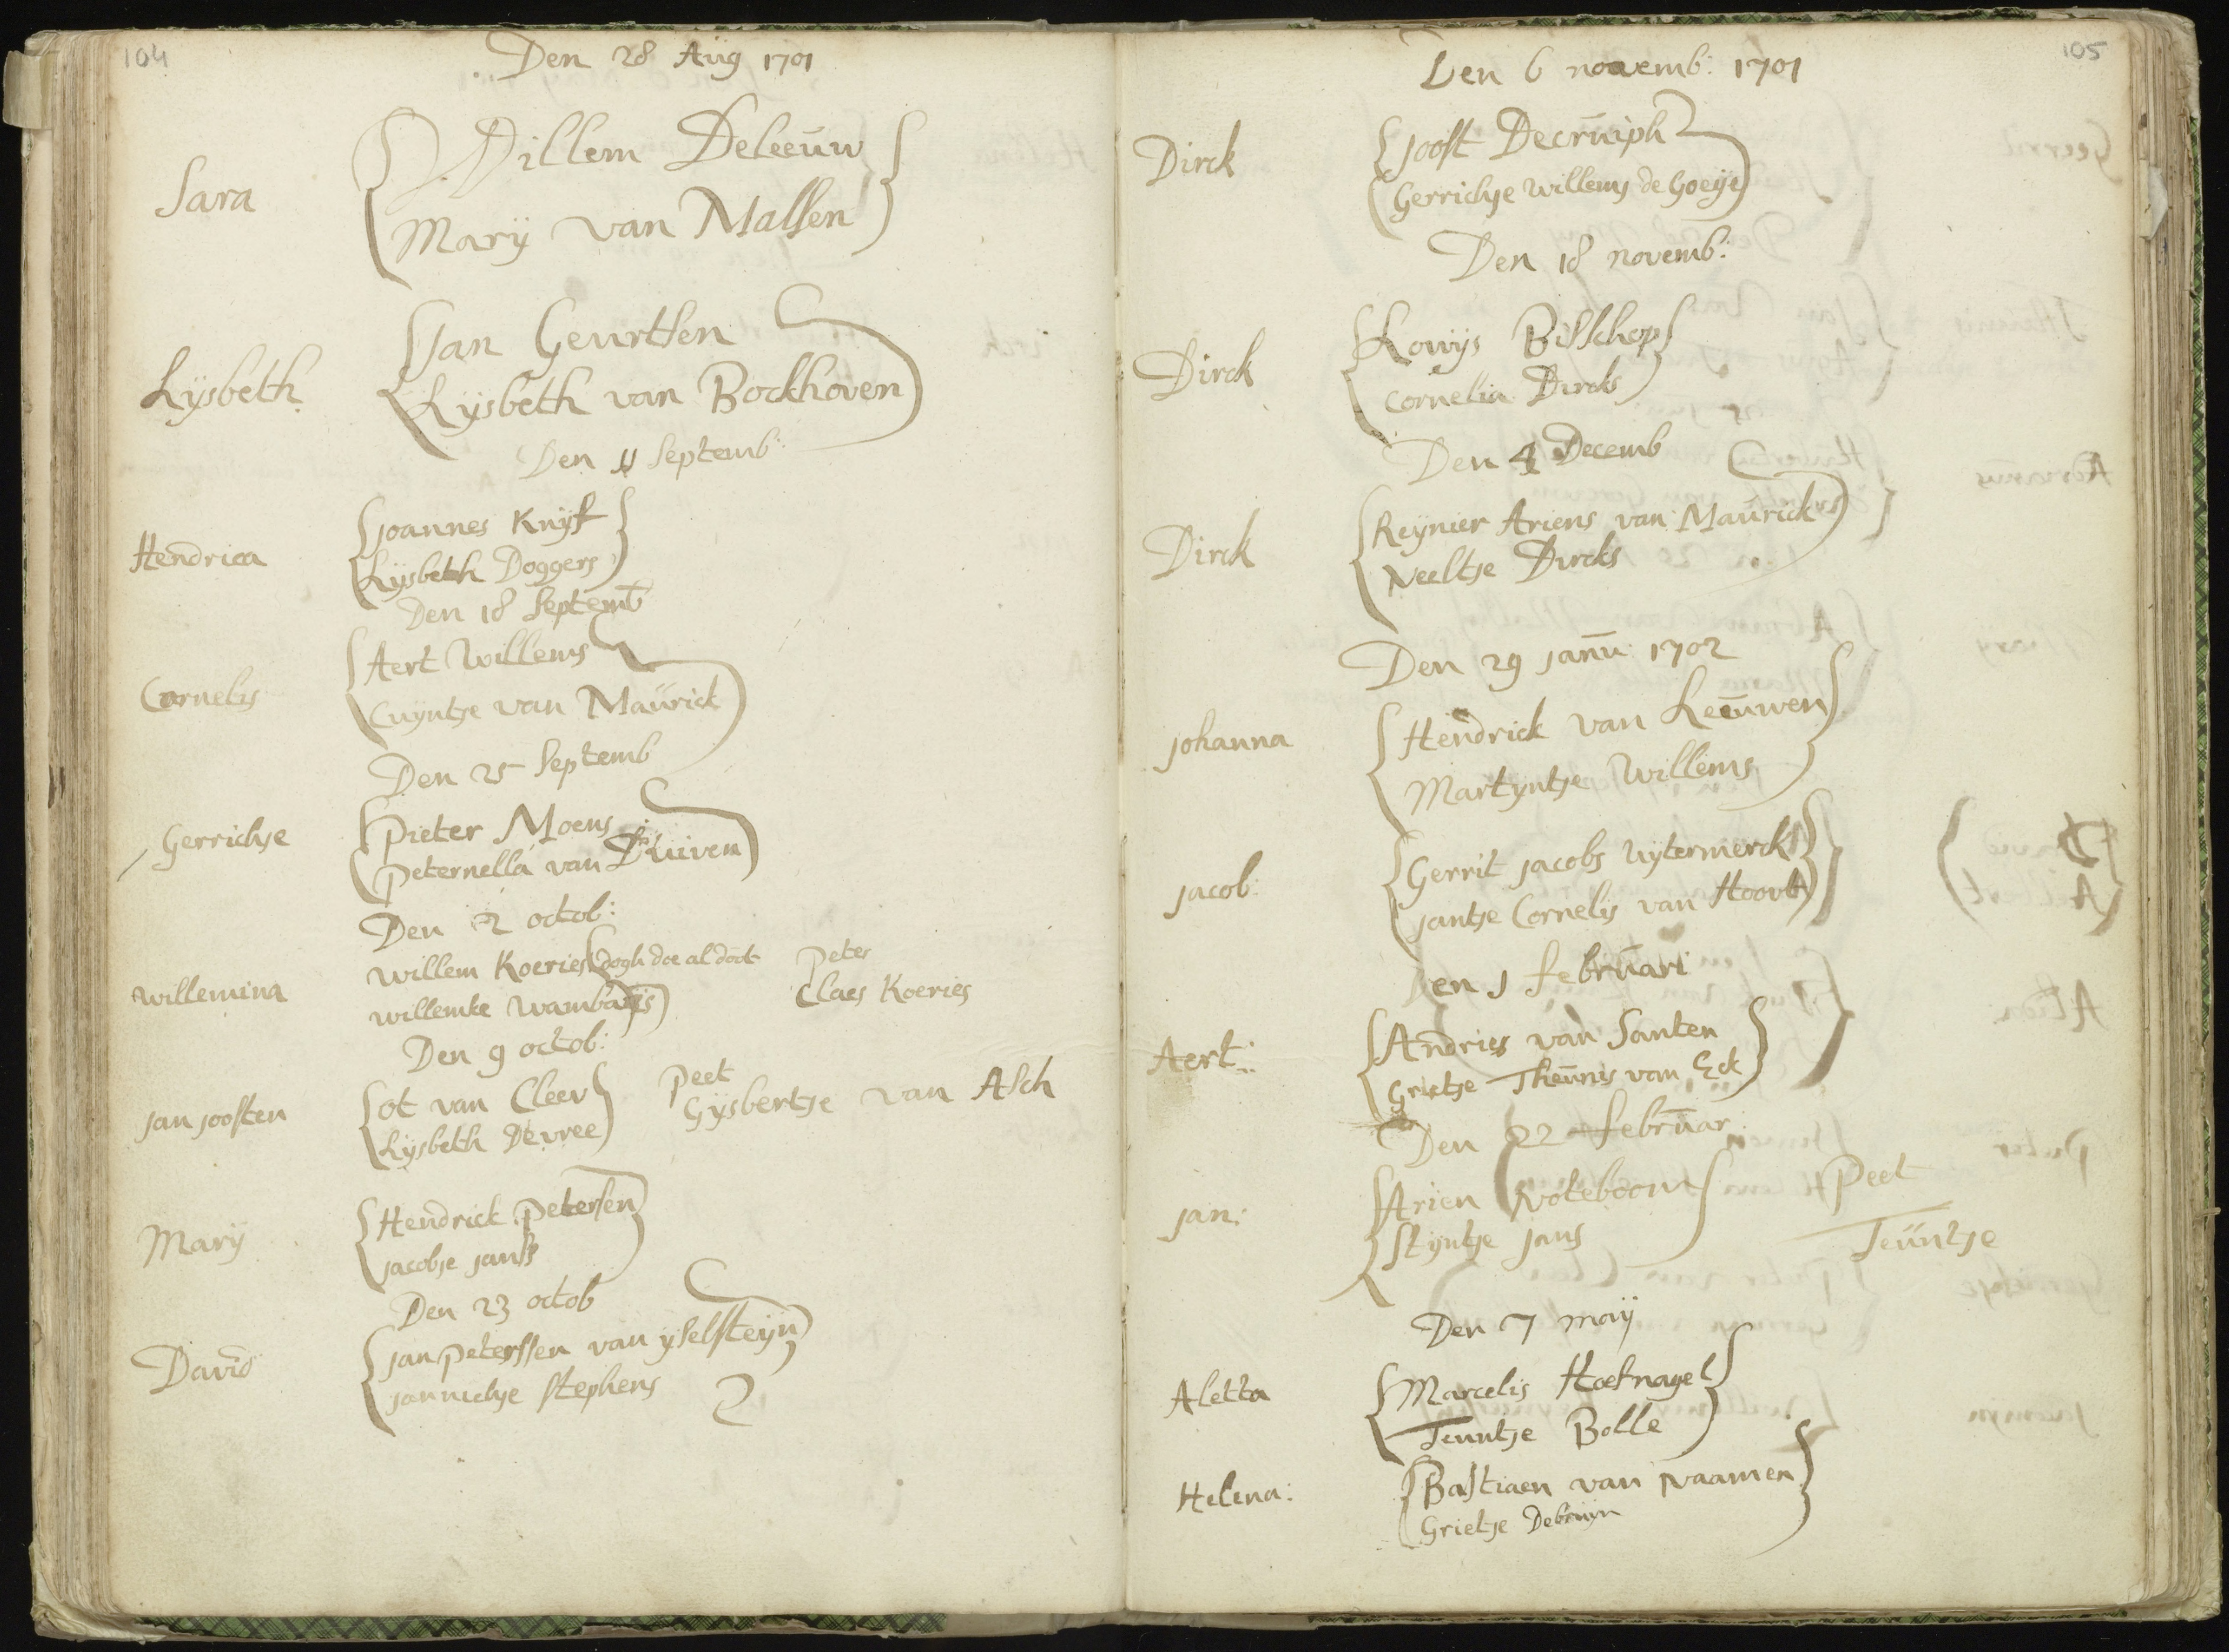 104
Den 28 Aug 1701
Sara
Willem Deleeuw
Marÿ van Massen
Lÿsbeth
Jan Geurtsen
Lÿsbeth van Bockhoven
Den 11 Septemb:
Hendrica
Joannes Knÿf
Lÿsbeth Doggers
Den 18 Septemb
Cornelis
Aert Willems
Cuÿntje van Maurick
Den 25 Septemb
Gerrichje
Pieter Moens
Peternella van
Den 2 octob:
Willemina
Willem Koeries dogh doe al doot
Willemke
Peter
Claes Koeries
Den 9 octob:
Jan Joosten
Ot van Cleev
Lÿsbeth Devree
Peet
Gÿsbertje van Asch
Marÿ
Hendrick Petersen
Jacobje Janss
Den 23 octob
David
Jan Peterssen van ÿselsteÿn
Jannichje Stephens
105
Den 6 novemb: 1701
Dirck
Joost Decruiph
Gerrichje Willems de Goeÿe
Den 18 novemb:
Dirck
Lowÿs Bisschop
Cornelia Dircks
Den 4 Decemb
Dirck
Reÿnier Ariens van Maurick
Neeltje Dircks
Den 29 Janu: 1702
Johanna
Hendrick van Leeuwen
Martÿntje Willems
Jacob:
Gerrit Jacobs Uÿtermerck
Jantje Cornelis van
Den 1 februari
Aert:
Andries van Santen
Grietje Theunis van Eck
Den 22 februar
Jan:
Arien Noteboom
Stÿntje Jans
Peet
Teuntje
Den 7 maÿ
Aletta
Marcelis Hoefnagel
Teuntje Bolle
Helena:
Bastiaen van Naamen
Grietje Debruÿn